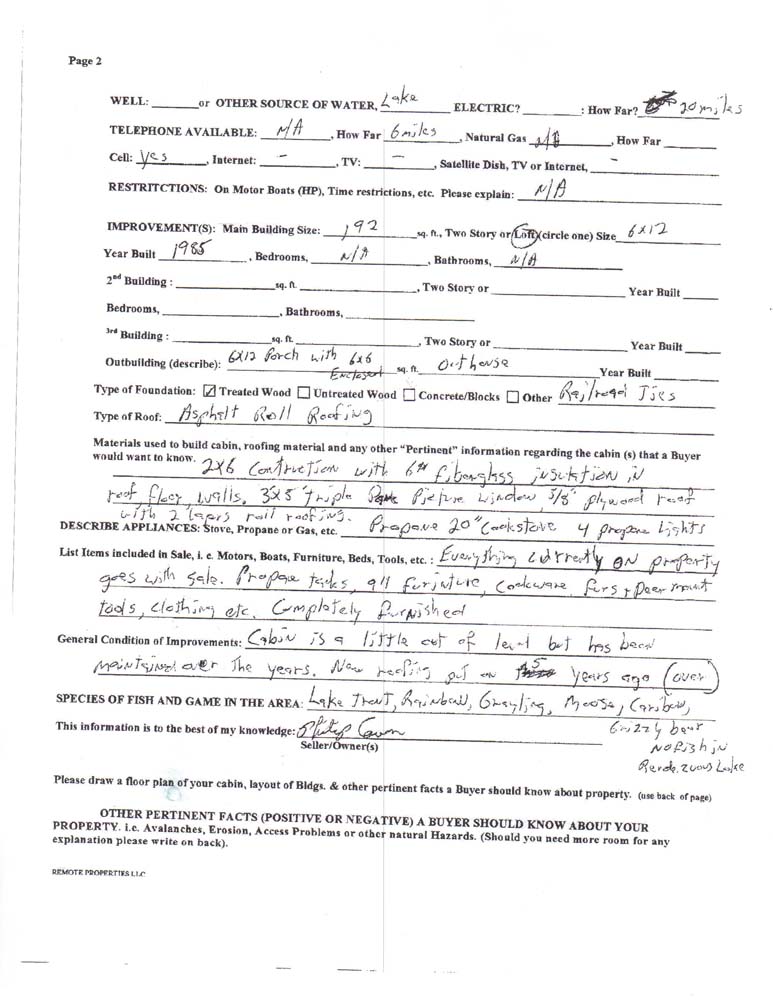 Page 2
WELL: ______or OTHER SOURCE OF WATER, Lake ELECTRIC? ________: How Far? 20 miles
TELEPHONE AVAILABLE: N/A, How Far 6 miles, Natural Gas N/A, How Far ____
Cell: Yes, Internet: -, TV: -, Satellite Dish, TV or Internet, -
RESTRITCTIONS: On Motor Boats (HP), Time restrictions, etc. Please explain: N/A
IMPROVEMENT(S): Main Building Size: 192 sq. ft., Two Story or (Loft)(circle one) Size 6x12
Year Built 1985, Bedrooms, N/A, Bathrooms, N/A
2nd Building : ________sq. ft. ________, Two Story or ________ Year Built ____
Bedrooms, ________, Bathrooms, ________
3rd Building : ________sq. ft. ________, Two Story or ________ Year Built ____
Outbuilding (describe): 6x12 Porch with 6x6 Enclosed sq. ft. Outhouse Year Built ____
Type of Foundation: ☑ Treated Wood ☐ Untreated Wood ☐ Concrete/Blocks ☐ Other Railroad Ties
Type of Roof: Asphalt Roll Roofing
Materials used to build cabin, roofing material and any other "Pertinent" information regarding the cabin (s) that a Buyer
would want to know. 2x6 Contruction with 6" fiberglass insulation in
roof floor, walls. 3'x5' triple Pane Picture window, 5/8" plywood roof
with 2 layers roll roofing.
DESCRIBE APPLIANCES: Stove, Propane or Gas, etc. Propane 20" Cookstove 4 propane lights
List Items included in Sale, i. e. Motors, Boats, Furniture, Beds, Tools, etc. : Everything currently on property
goes with sale. Propane tanks, all furniture, Cookware, furs + Deer mount
tools, clothing etc. Completely furnished
General Condition of Improvements: Cabin is a little out of level but has been
maintained over the years. New roofing put on 5 years ago (over)
SPECIES OF FISH AND GAME IN THE AREA: Lake Trout, Rainbow, Grayling, Moose, Caribou,
Grizzly bear
This information is to the best of my knowledge: Philip
Seller/Owner(s)
No fish in
Rendezvous Lake
Please draw a floor plan of your cabin, layout of Bldgs. & other pertinent facts a Buyer should know about property. (use back of page)
OTHER PERTINENT FACTS (POSITIVE OR NEGATIVE) A BUYER SHOULD KNOW ABOUT YOUR
PROPERTY. i.e. Avalanches, Erosion, Access Problems or other natural Hazards. (Should you need more room for any
explanation please write on back).
REMOTE PROPERTIES LLC